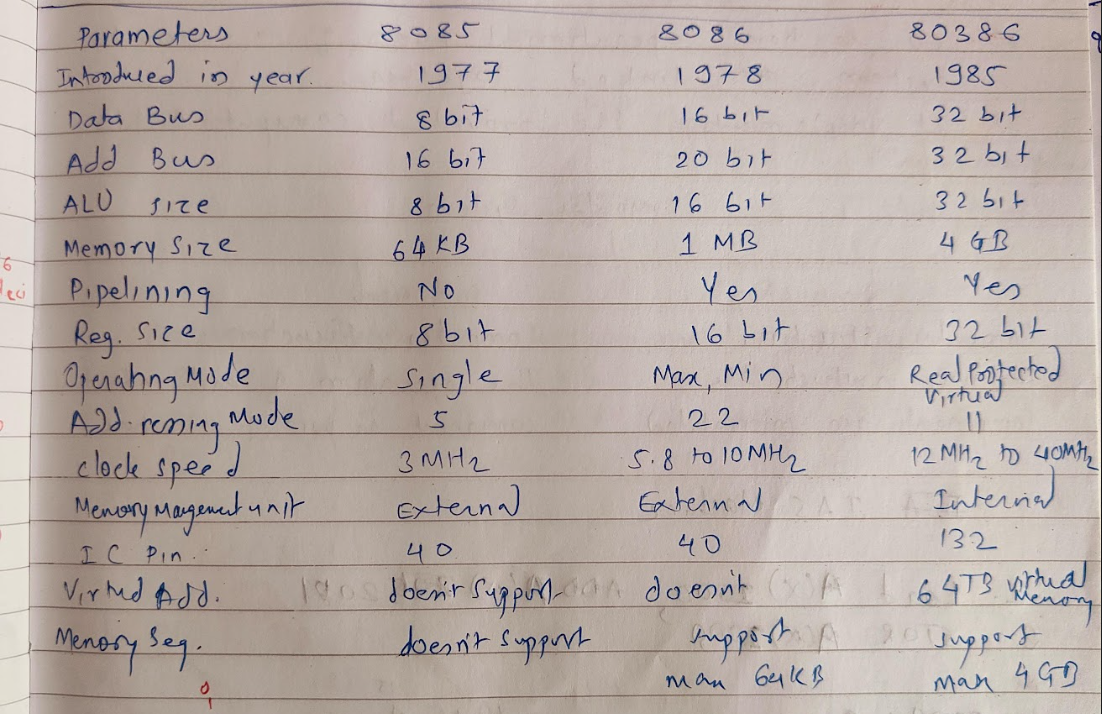 Parameters 8085 8086 80386
Introduced in year. 1977 1978 1985
Data Bus 8 bit 16 bit 32 bit
Add Bus 16 bit 20 bit 32 bit
ALU size 8 bit 16 bit 32 bit
Memory Size 64 KB 1 MB 4 GB
Pipelining No Yes Yes
Reg. Size 8 bit 16 bit 32 bit
Operating Mode Single Max, Min Real Protected
Virtual
Add.ressing Mode 5 22 11
clock speed 3 MHz 5.8 to 10 MHz 12 MHz to 40 MHz
Memory Mangement unit External External Internal
IC Pin. 40 40 132
Virtual Add. doesn't support doesn't 64TB virtual
Memory
Memory Seg. doesn't support support support
max 64KB max 4 GB